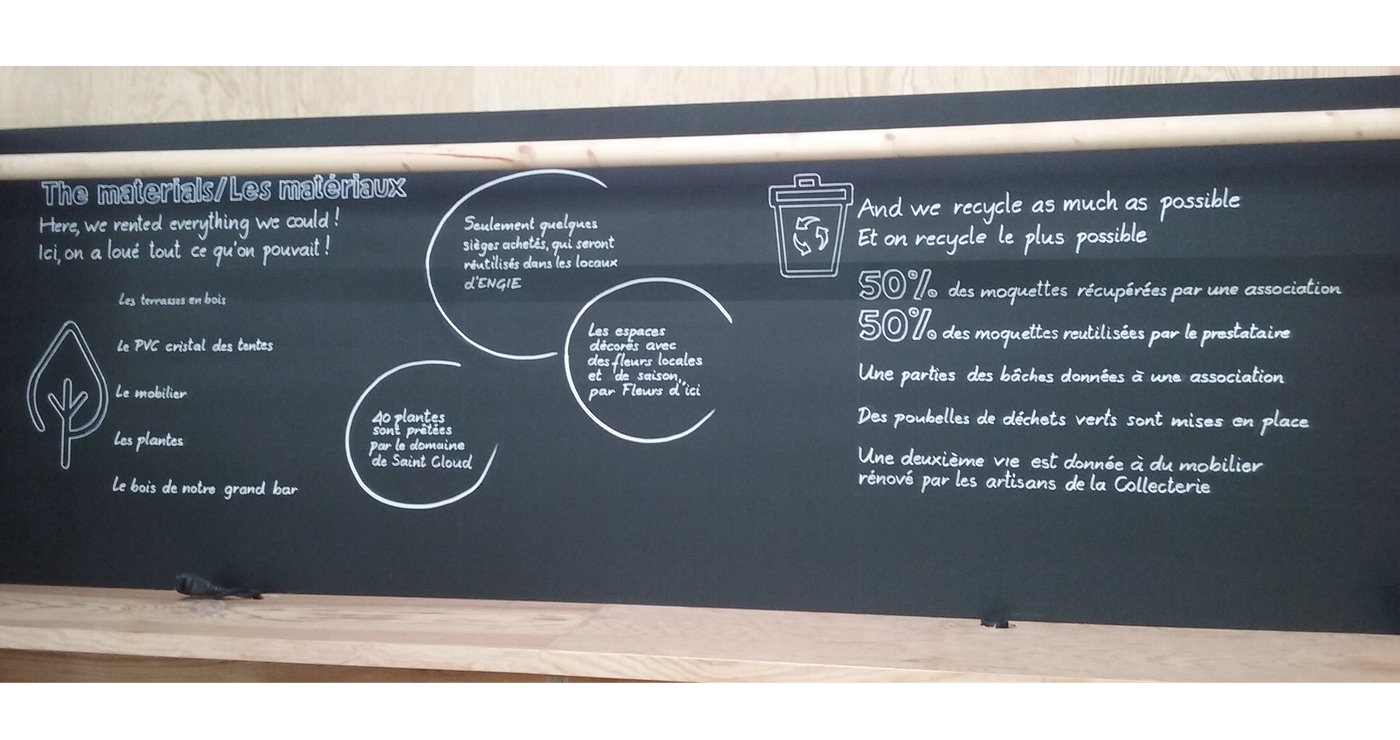 The materials/Les matériaux
Here, we rented everything we could !
Ici, on a loué tout ce qu'on pouvait !
Les terrasses en bois
Le PVC cristal des tentes
Le mobilier
Les plantes
Le bois de notre grand bar
Seulement quelques
sièges achetés, qui seront
réutilisés dans les locaux
d'ENGIE
Les espaces
décorés avec
des fleurs locales
et de saison,
par Fleurs d'ici
40 plantes
sont prêtées
par le domaine
de Saint Cloud
And we recycle as much as possible
Et on recycle le plus possible
50% des moquettes récupérées par une association
50% des moquettes reutilisées par le prestataire
Une parties des bâches données à une association
Des poubelles de déchets verts sont mises en place
Une deuxième vie est donnée à du mobilier
rénové par les artisans de la Collecterie